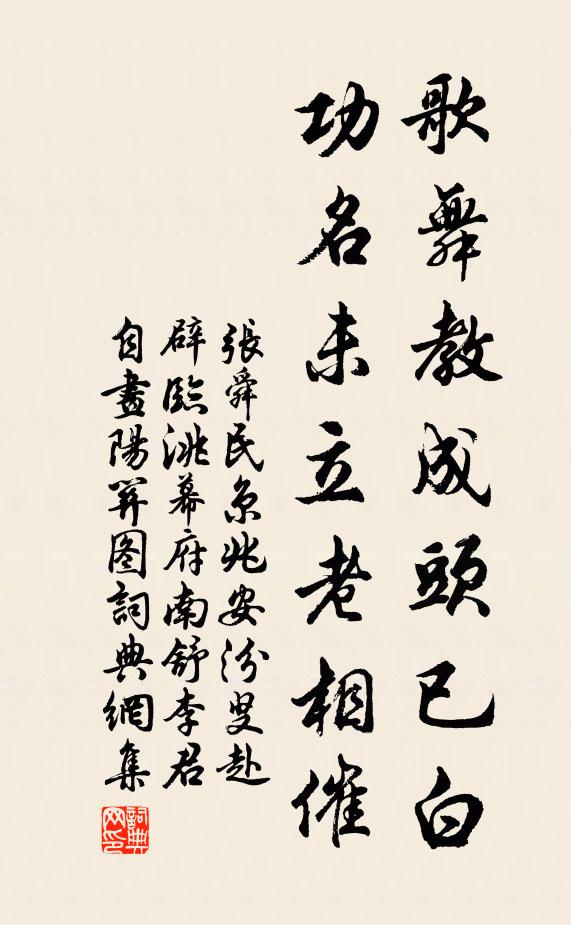 歌舞教成頭已白
功名未立老相催
張舜民京兆安汾叟赴
辟臨洮幕府南舒李君
自畫陽關圖詞典網集
詞典網印